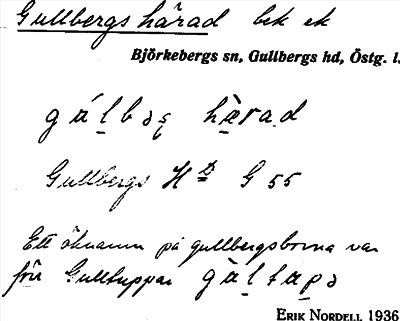 Gullbergs härad bek ek
Björkebergs sn, Gullbergs hd, Östg. l.
gálbəș hàrad
Gullbergs Hd G 55
Ett öknamn på gullbergsborna var
förr Gulltuppar gàltapə
ERIK NORDELL 1936